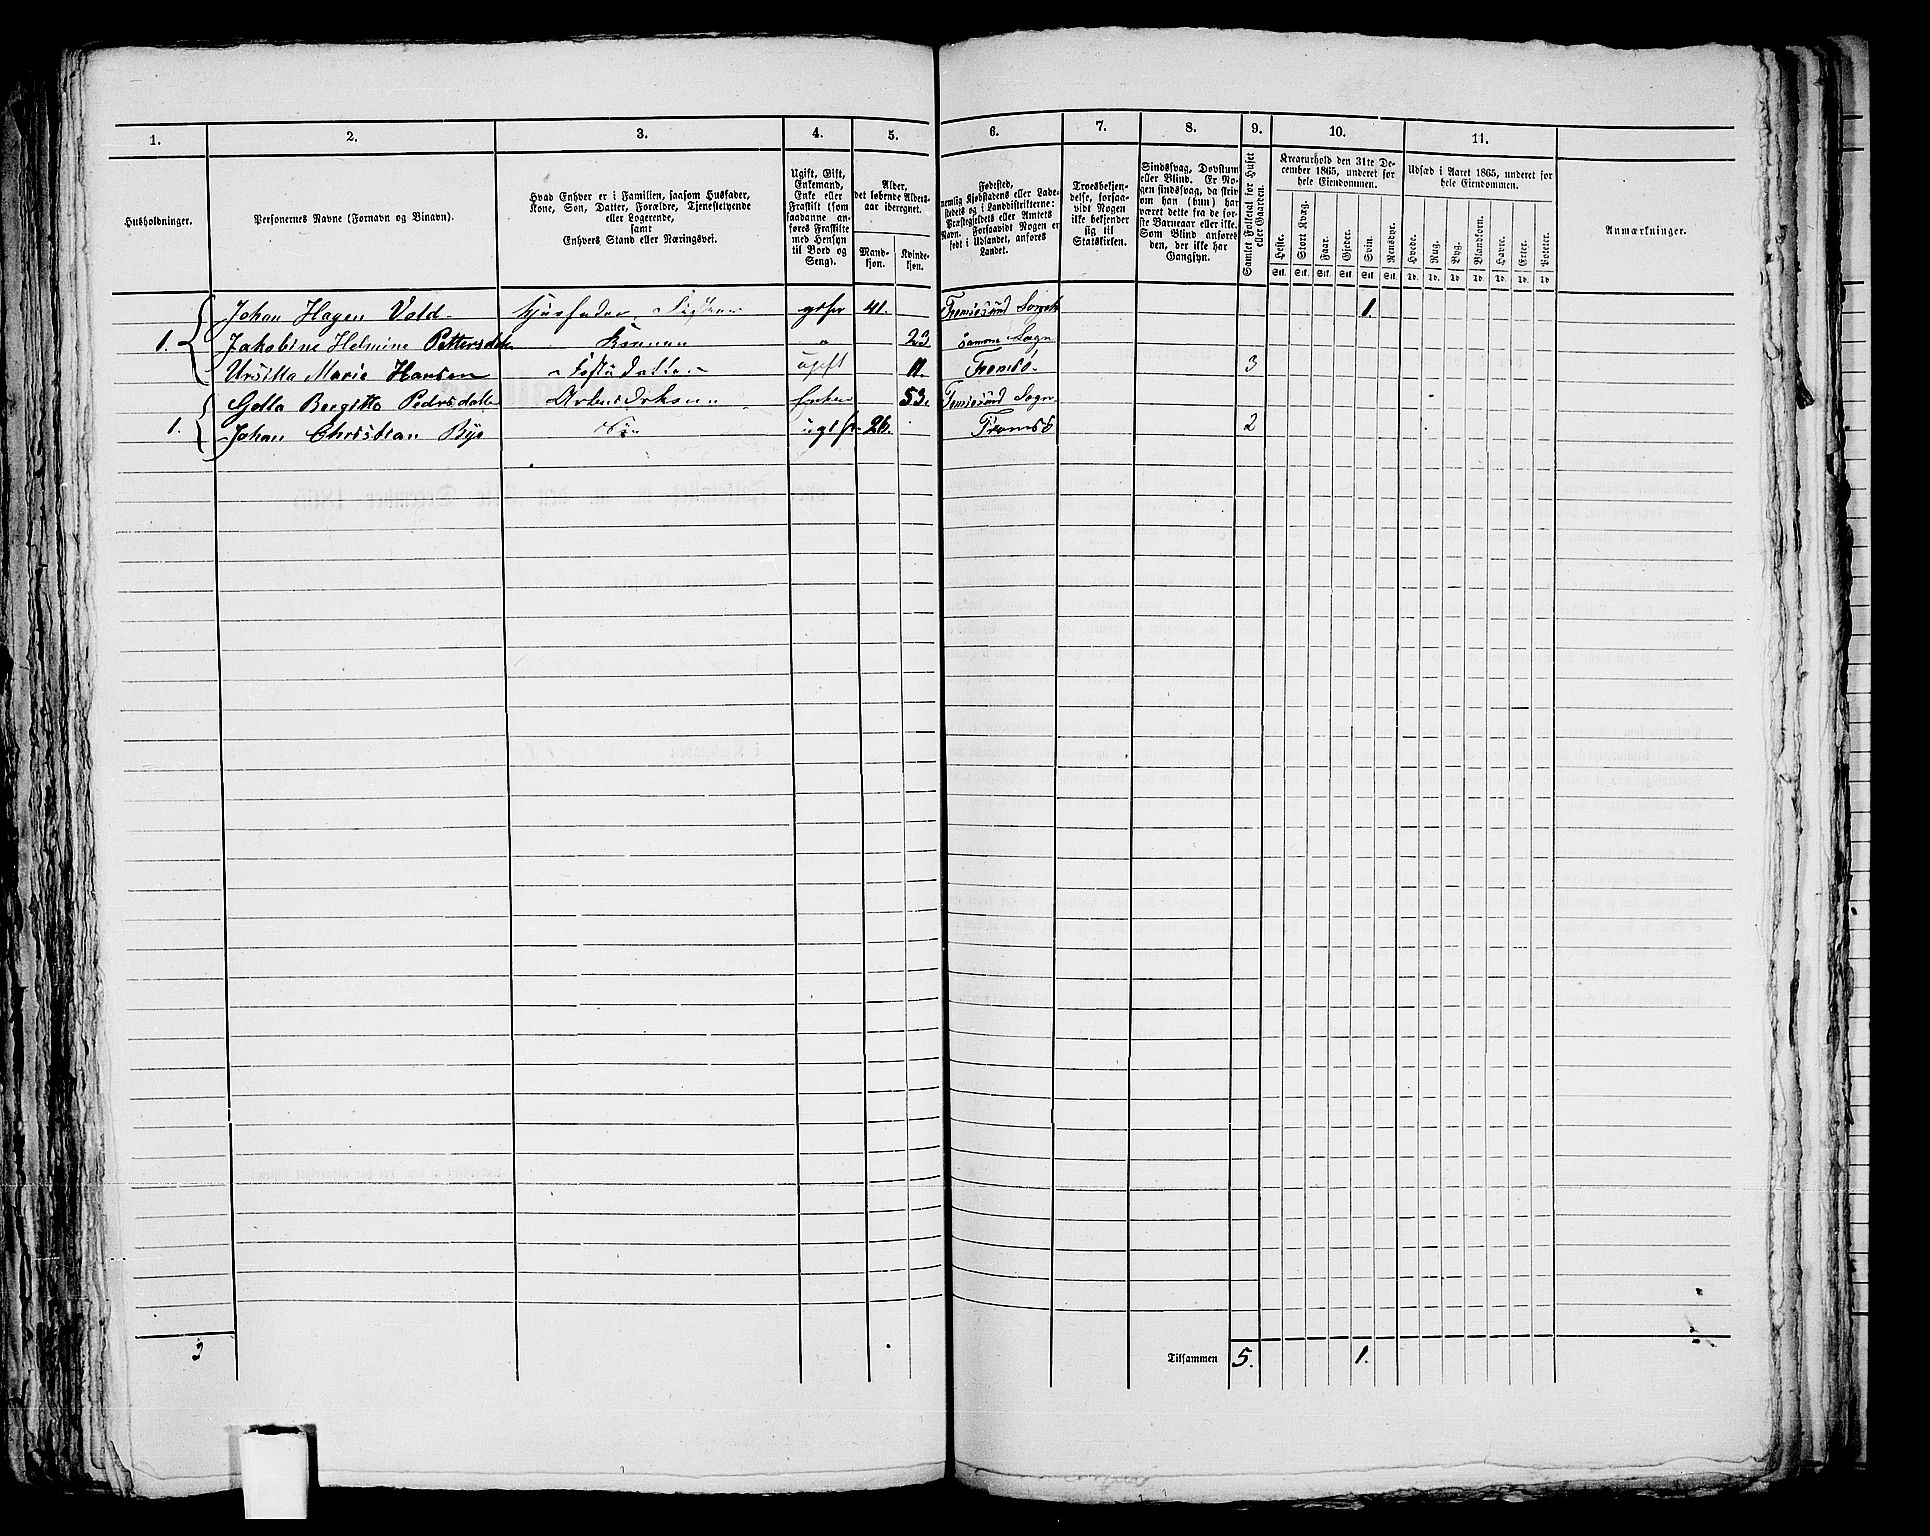 1.
2.
3.
4.
5.
6.
7.
8.
9.
10.
11.
Husholdninger.
Personernes Navne (Fornavn og Binavn).
Hvad Enhver er i Familien, saasom Husfader,
Kone, Søn, Datter, Forældre, Tjenestetyende
eller Logerende,
samt
Enhvers Stand eller Næringsvei.
Ugift, Gift,
Enkemand,
Enke eller
Fraskilt (som
saadanne an-
føres Fraskilte
med Hensyn
til Bord og
Seng).
Alder,
det løbende Alders-
aar iberegnet.
Mand-
kjøn.
Kvinde-
kjøn.
Fødested,
nemlig Kjøbstadens eller Lade-
stedets og i Landdistrikterne:
Præstegjeldets eller Annexets
Navn. Forsaavidt Nogen er
født i Udlandet, anføres
Landet.
Troesbekjen-
delse, forsaa-
vidt Nogen
ikke bekjender
sig til
Statskirken.
Sindssvag, Døvstum
eller Blind. Er No-
gen sindssvag, da skriv
om han (hun) har
været dette fra de før-
ste Barneaar eller ikke.
Som Blind anføres
den, der ikke har
Gangsyn.
Samlet Folketal for Huset
eller Gaarden.
Kreaturhold den 31te De-
cember 1865, underet for
hele Eiendommen.
Heste.
Stort Kvæg.
Faar.
Gjeder.
Svin.
Rensdyr.
Udsæd i Aaret 1865, underet for
hele Eiendommen.
Hvede.
Rug.
Byg.
Blandkorn.
Havre.
Erter.
Poteter.
Stk. Stk. Stk. Stk. Stk. Stk. Td. Td. Td. Td. Td. Td. Td
Anmærkninger.
Johan Hagen Vold 41. 1.
1. Jakobine Helmine Pettersdtr Konen " 23. samme Sogn
Marie Hansen ugift 11. Tromsø. 3
Bergitta Pedersdatter Enke 53. Sogn
1. Johan Christian Bye Søn ugift 26. Tromsö 2
Tilsammen 5. 1.